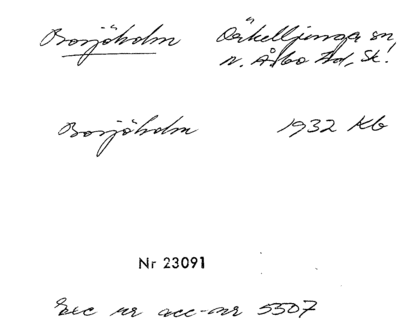 Borjöholm Örkelljunga sn
N. Åsbo hd, Sk!
Borjöholm 1932 Kb
Nr 23091
Exc ur acc-nr 5507